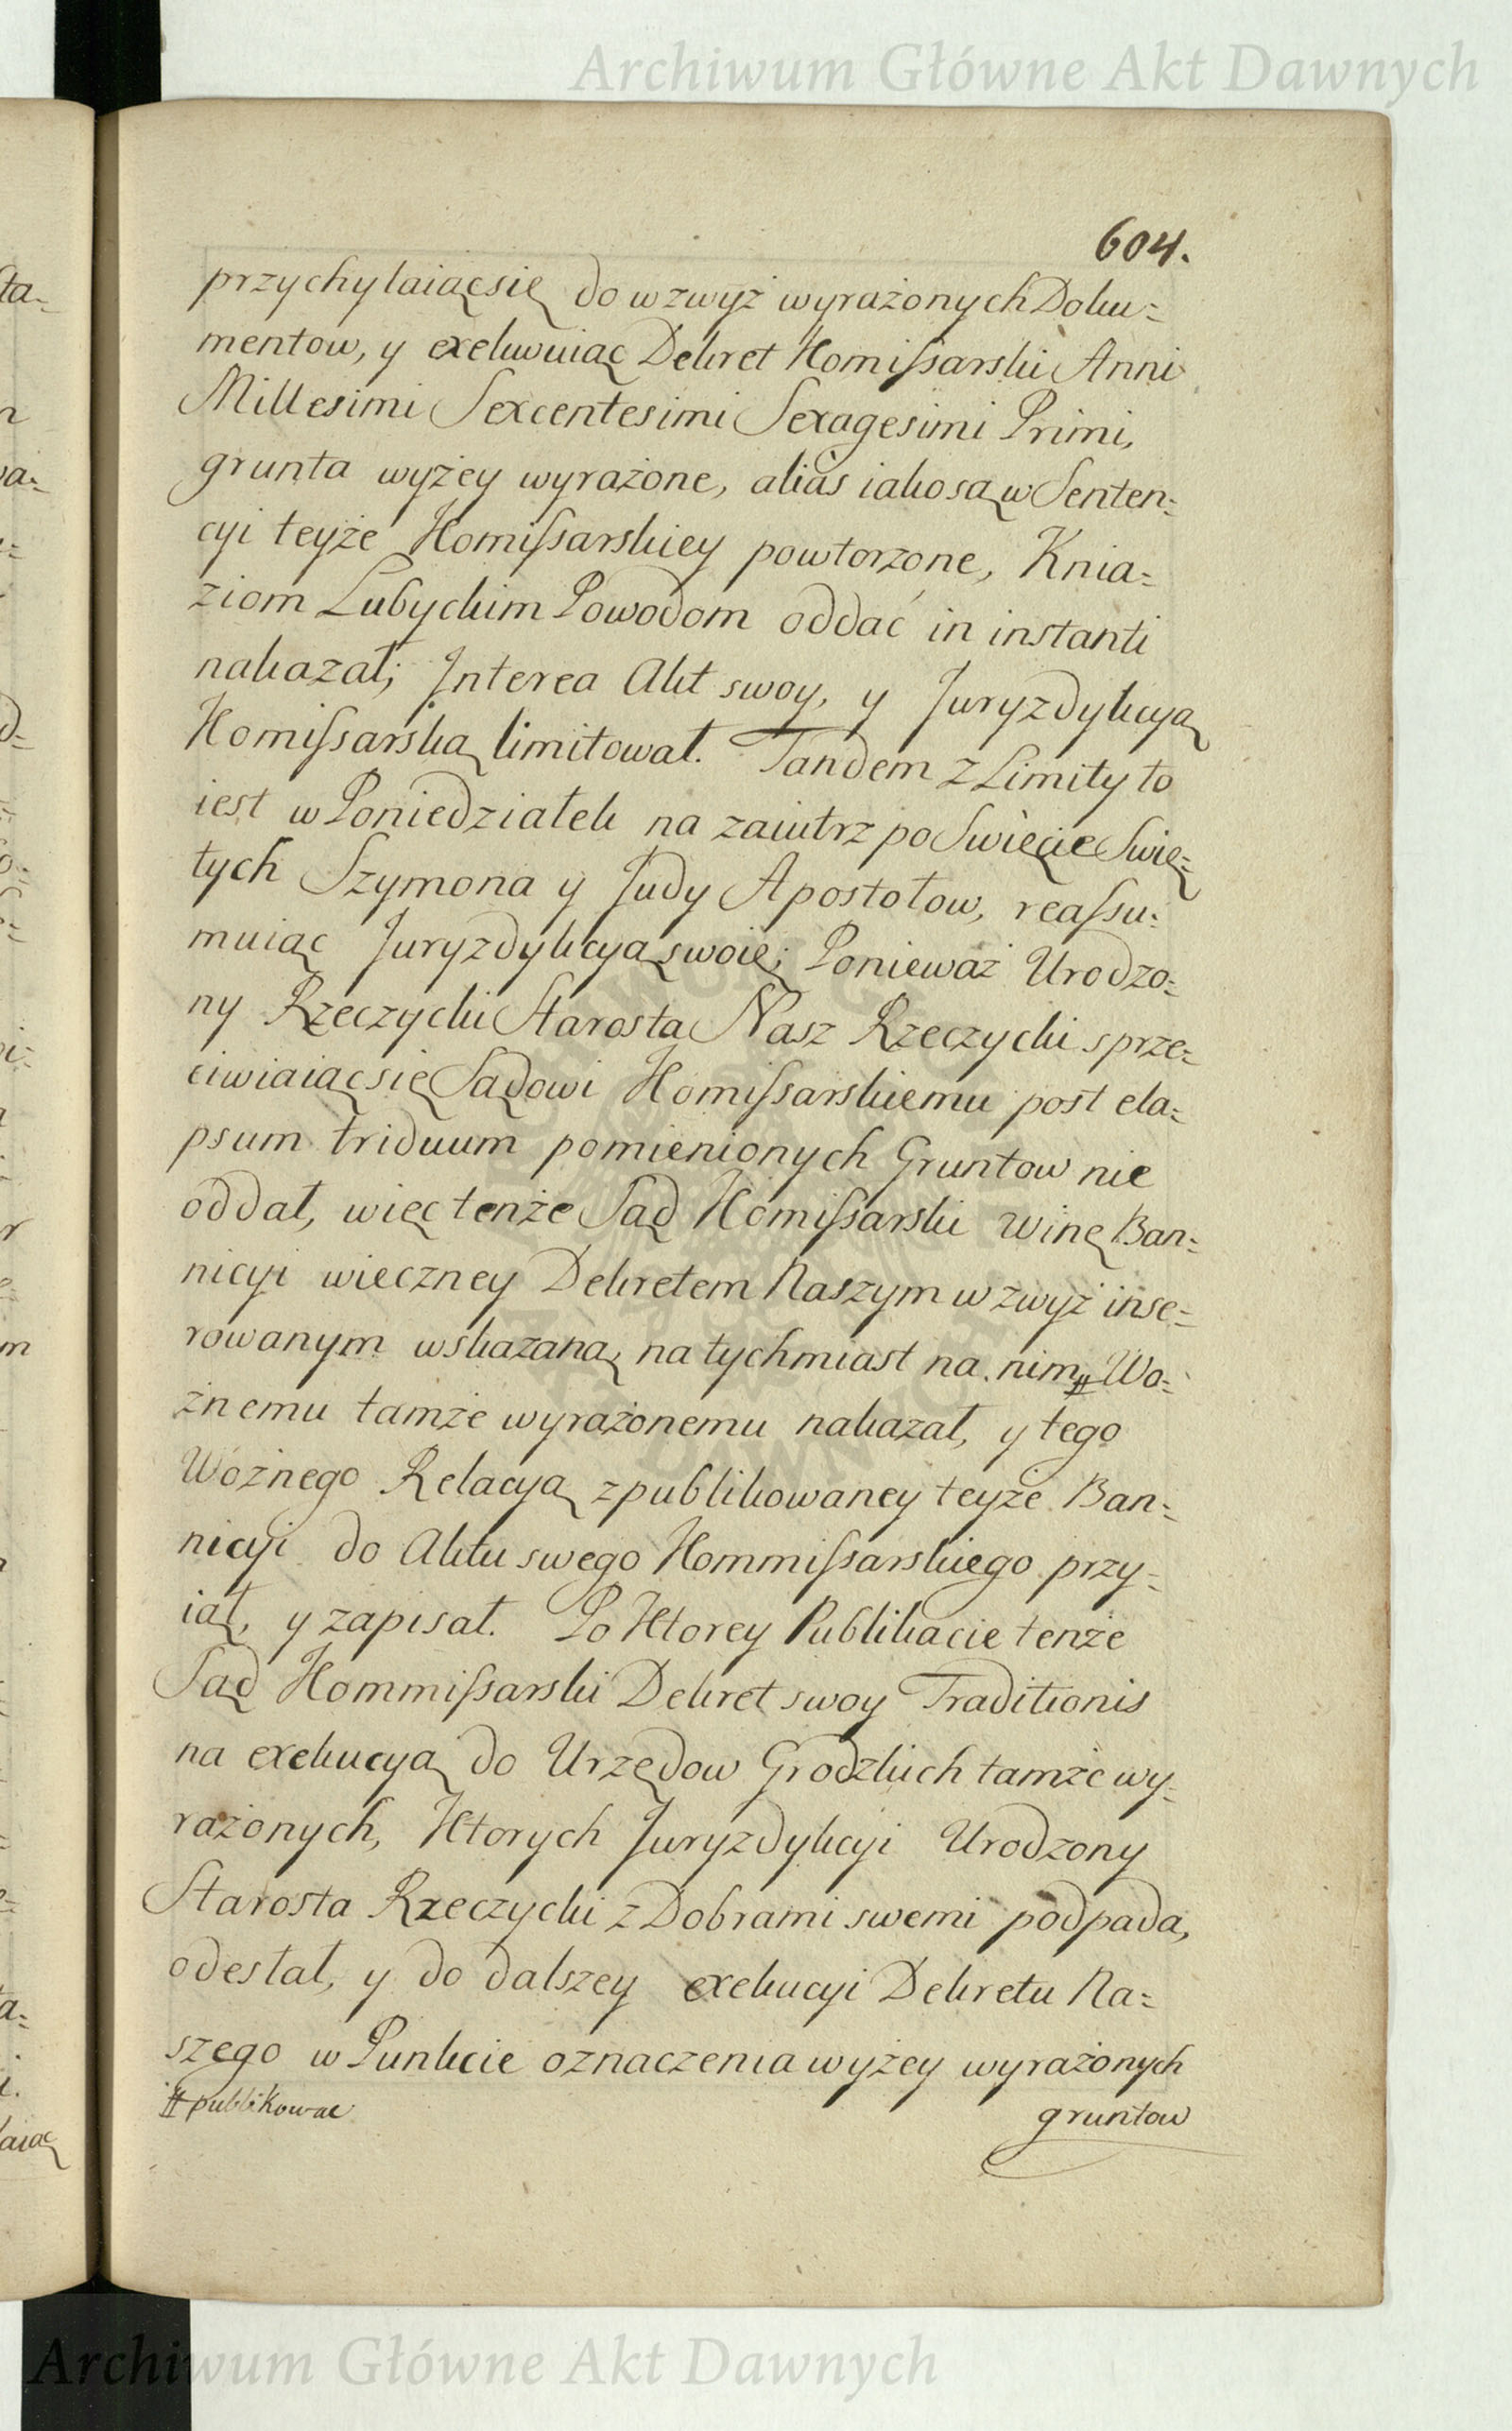 Archiwum Główne Akt Dawnych
604.
przychylaiąc się do wzwyż wyrażonych Doku=
mentow, y exekwuiąc Dekret Komissarski Anni
Millesimi Sexcentesimi Sexagesimi Primi,
grunta wyżey wyrażone, alias iako są w Senten=
cyi teyże Komissarskiey powtorzone, Knia=
ziom Lubyckim Powodom oddać in instanti
nakazał; Interea Akt swoy, y Juryzdykcyą
Komissarską limitował. Tandem z Limity to
iest w Poniedziałek na zaiutrz po Swięcie Swię=
tych Szymona y Judy Apostołow, reassu=
muiąc Juryzdykcyą swoię; Ponieważ Urodzo=
ny Rzeczycki Starosta Nasz Rzeczycki sprze=
ciwiaiąc się Sądowi Komissarskiemu post ela=
psum triduum pomienionych Gruntow nie
oddał, więc tenże Sąd Komissarski winę Ban=
nicyi wieczney Dekretem Naszym wzwyż inse=
rowanym wskazaną, natychmiast na nim # Wo=
źnemu tamże wyrażonemu nakazał, y tego
Woźnego Relacyą z publikowaney teyże Ban=
nicyi do Aktu swego Kommissarskiego przy=
iął, y zapisał. Po Ktorey Publikacie tenże
Sąd Kommissarski Dekret swoy Traditionis
na exekucyą do Urzędow Grodzkich tamże wy=
rażonych, Ktorych Juryzdykcyi Urodzony
Starosta Rzeczycki z Dobrami swemi podpada,
odesłał, y do dalszey exekucyi Dekretu Na=
szego w Punkcie oznaczenia wyżey wyrażonych
# publikowac
gruntow
Archiwum Główne Akt Dawnych